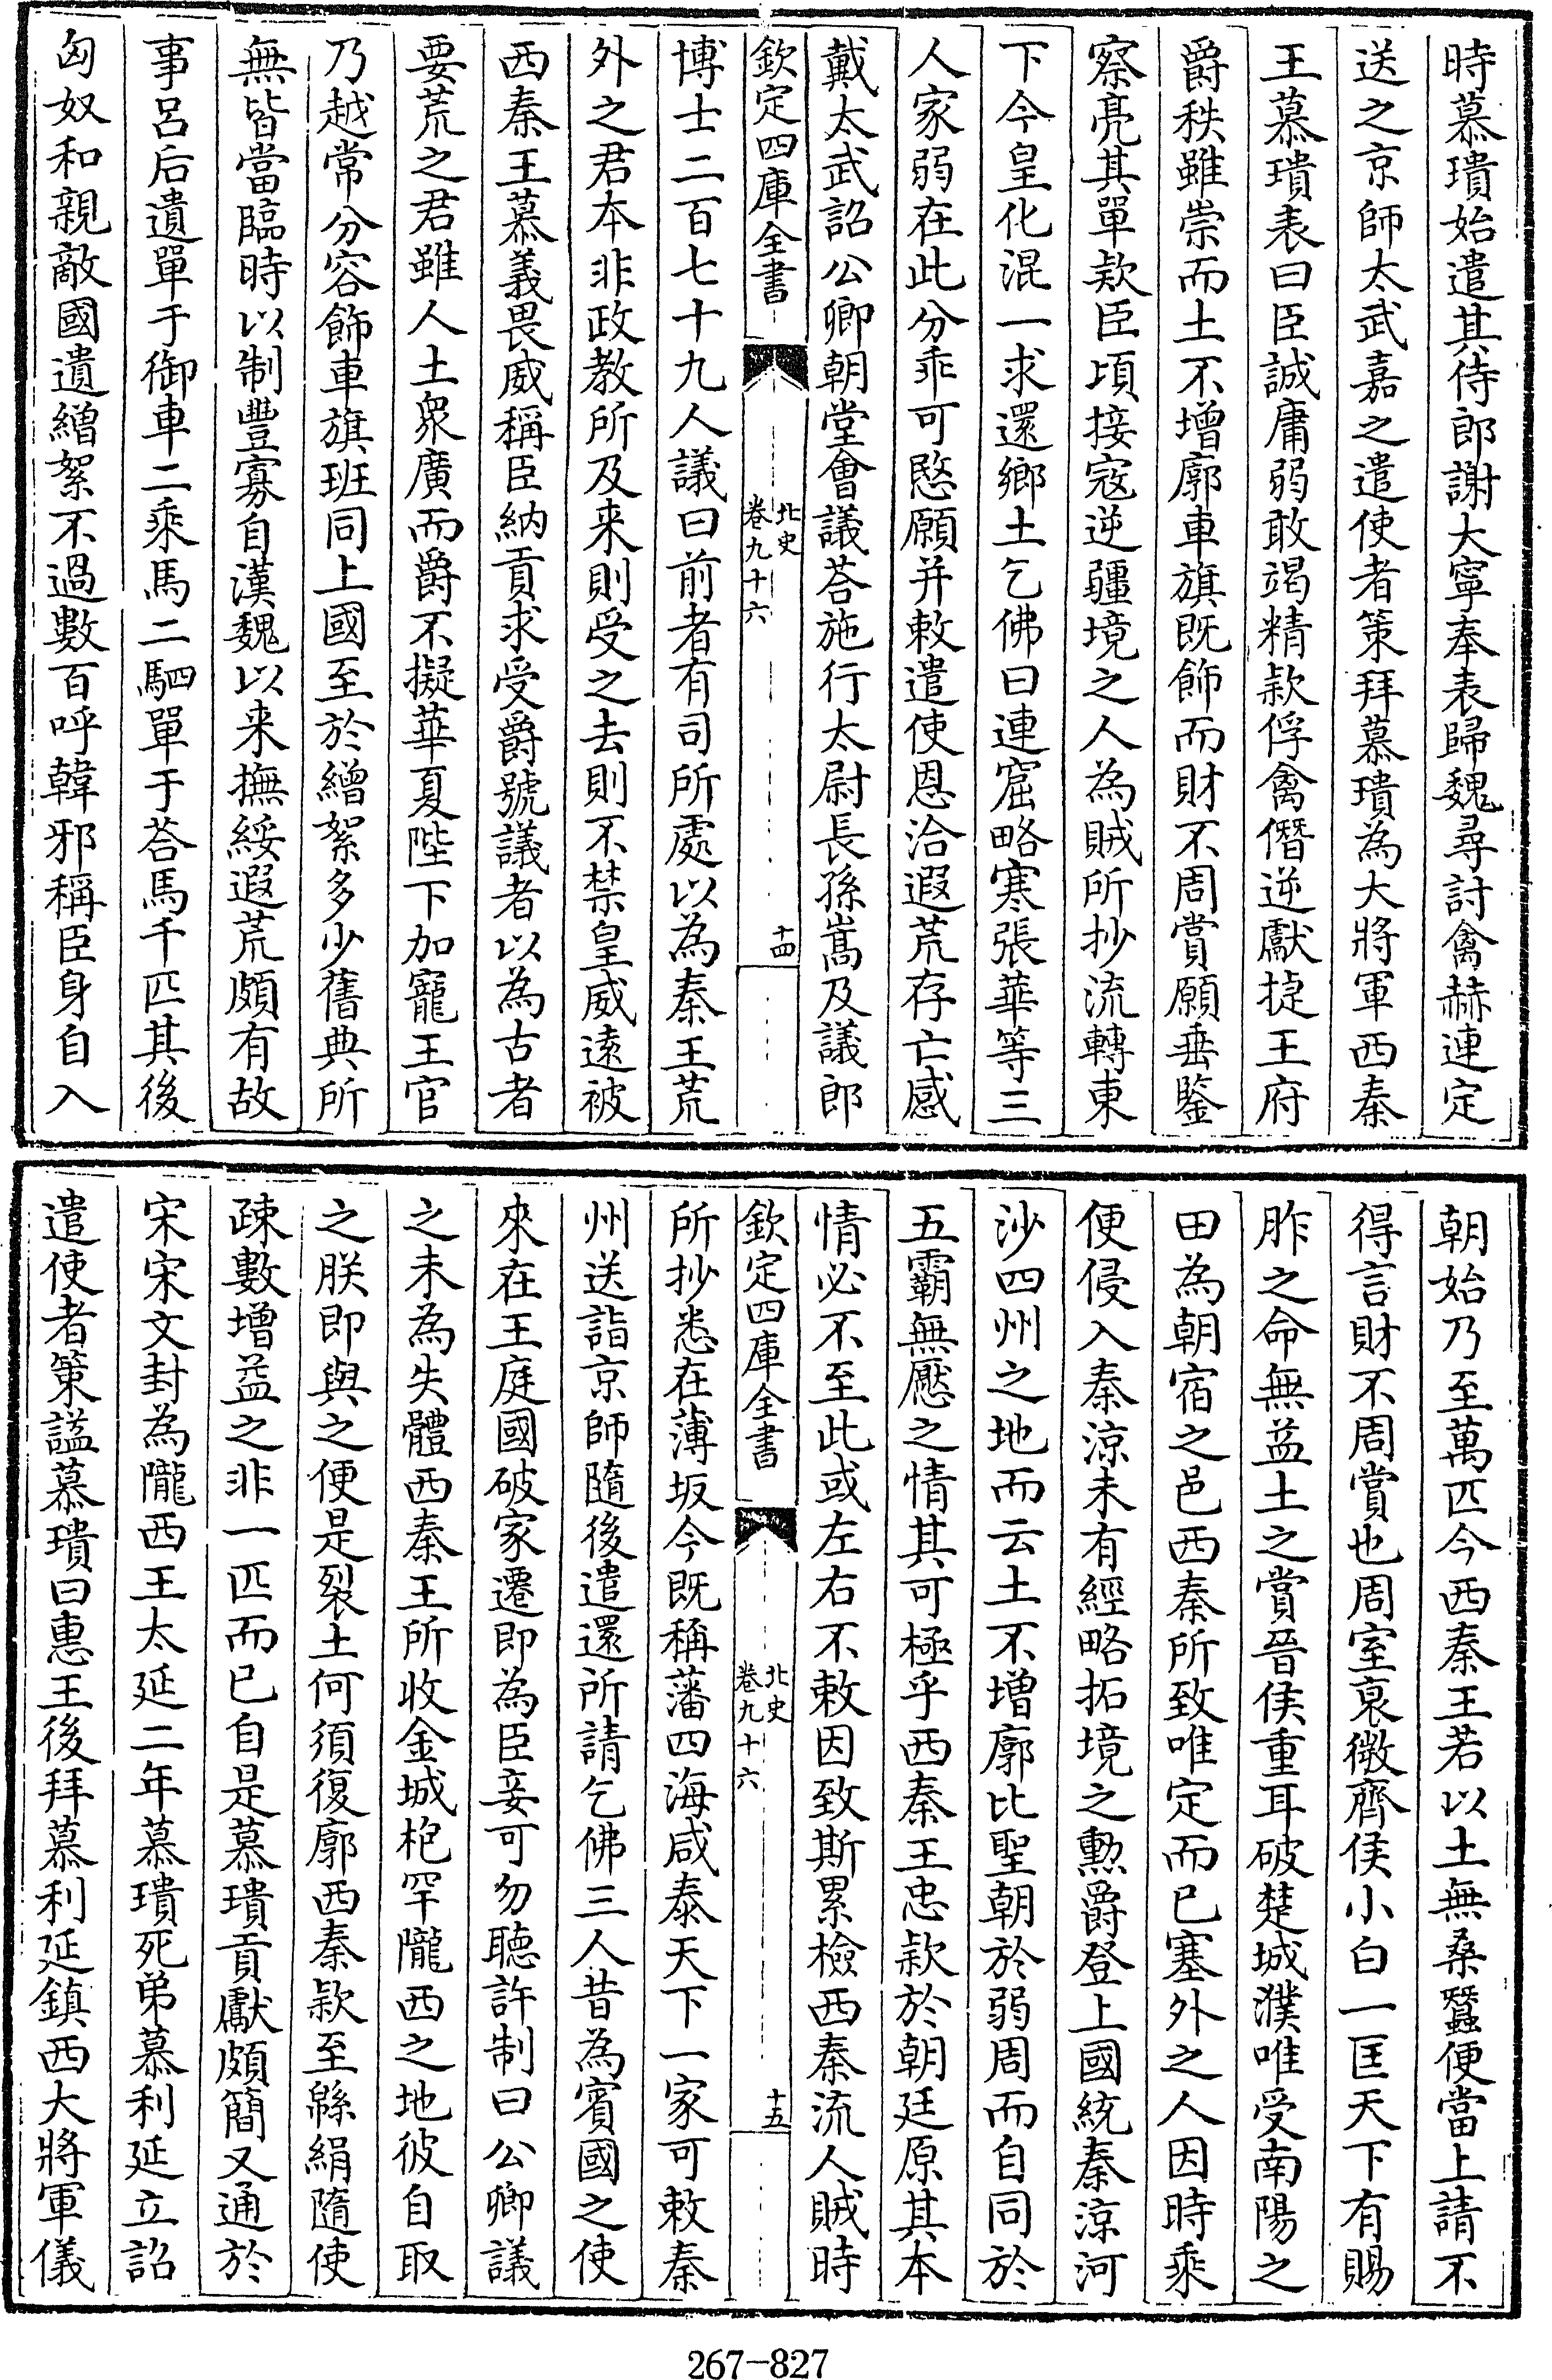 時慕璝始遣其侍郎謝大寧奉表歸魏尋討禽赫連定
送之京師太武嘉之遣使者策拜慕璝為大將軍西秦
王慕璝表曰臣誠庸弱敢竭精款俘禽僭逆獻捷王府
爵秩雖崇而土不增廓車旗既飾而財不周賞願垂鑒
察亮其單款臣頃接寇逆疆境之人為賊所抄流轉東
下今皇化混一求還鄉土乞佛曰連窟略寒張華等三
人家弱在此分乖可愍願并敕遣使恩洽遐荒存亡感
戴太武詔公卿朝堂會議荅施行太尉長孫嵩及議郎
欽定四庫全書
北史
卷九十六
十四
博士二百七十九人議曰前者有司所處以為秦王荒
外之君本非政教所及来則受之去則不禁皇威遠被
西秦王慕義畏威稱臣納貢求受爵號議者以為古者
要荒之君雖人土衆廣而爵不擬華夏陛下加寵王官
乃越常分容飾車旗班同上國至於繒絮多少舊典所
無皆當臨時以制豐寡自漢魏以来撫綏遐荒頗有故
事呂后遺單于御車二乘馬二駟單于荅馬千匹其後
匈奴和親敵國遺繒絮不過數百呼韓邪稱臣身自入
朝始乃至萬匹今西秦王若以土無桑蠶便當上請不
得言財不周賞也周室衰微齊侯小白一匡天下有賜
胙之命無益土之賞晉侯重耳破楚城濮唯受南陽之
田為朝宿之邑西秦所致唯定而已塞外之人因時乘
便侵入秦涼未有經略拓境之勲爵登上國統秦涼河
沙四州之地而云土不增廓比聖朝於弱周而自同於
五霸無厭之情其可極乎西秦王忠款於朝廷原其本
情必不至此或左右不敕因致斯累檢西秦流人賊時
欽定四庫全書
北史
卷九十六
十五
所抄悉在薄坂今既稱藩四海咸泰天下一家可敕秦
州送詣京師隨後遣還所請乞佛三人昔為賓國之使
來在王庭國破家遷即為臣妾可勿聽許制曰公卿議
之未為失體西秦王所收金城枹罕隴西之地彼自取
之朕即與之便是裂土何須復廓西秦款至緜絹隨使
疎數增益之非一匹而已自是慕璝貢獻頗簡又通於
宋宋文封為隴西王太延二年慕璝死弟慕利延立詔
遣使者策諡慕璝曰惠王後拜慕利延鎮西大將軍儀
267-827